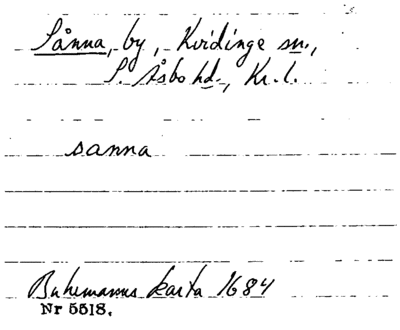 Sånna, by, Kvidinge sn.,
S. Åsbo hd., Kr. l.
sanna
Buhrmanns karta 1684
Nr 5518.